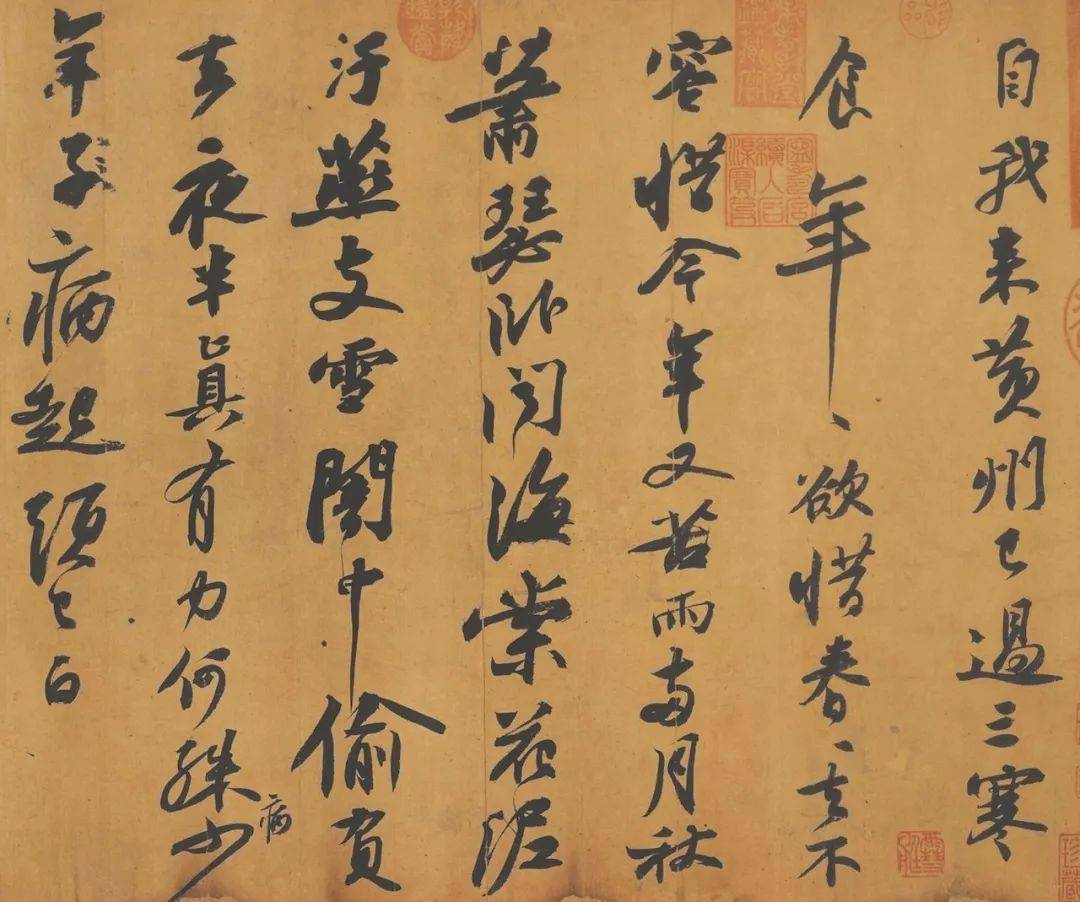 自我来黄州已過三寒
食年〻欲惜春〻去不
容惜今年又苦雨兩月秋
蕭瑟臥聞海棠花泥
汙燕支雪闇中偷負
去夜半真有力何殊病少
年子病起頭已白